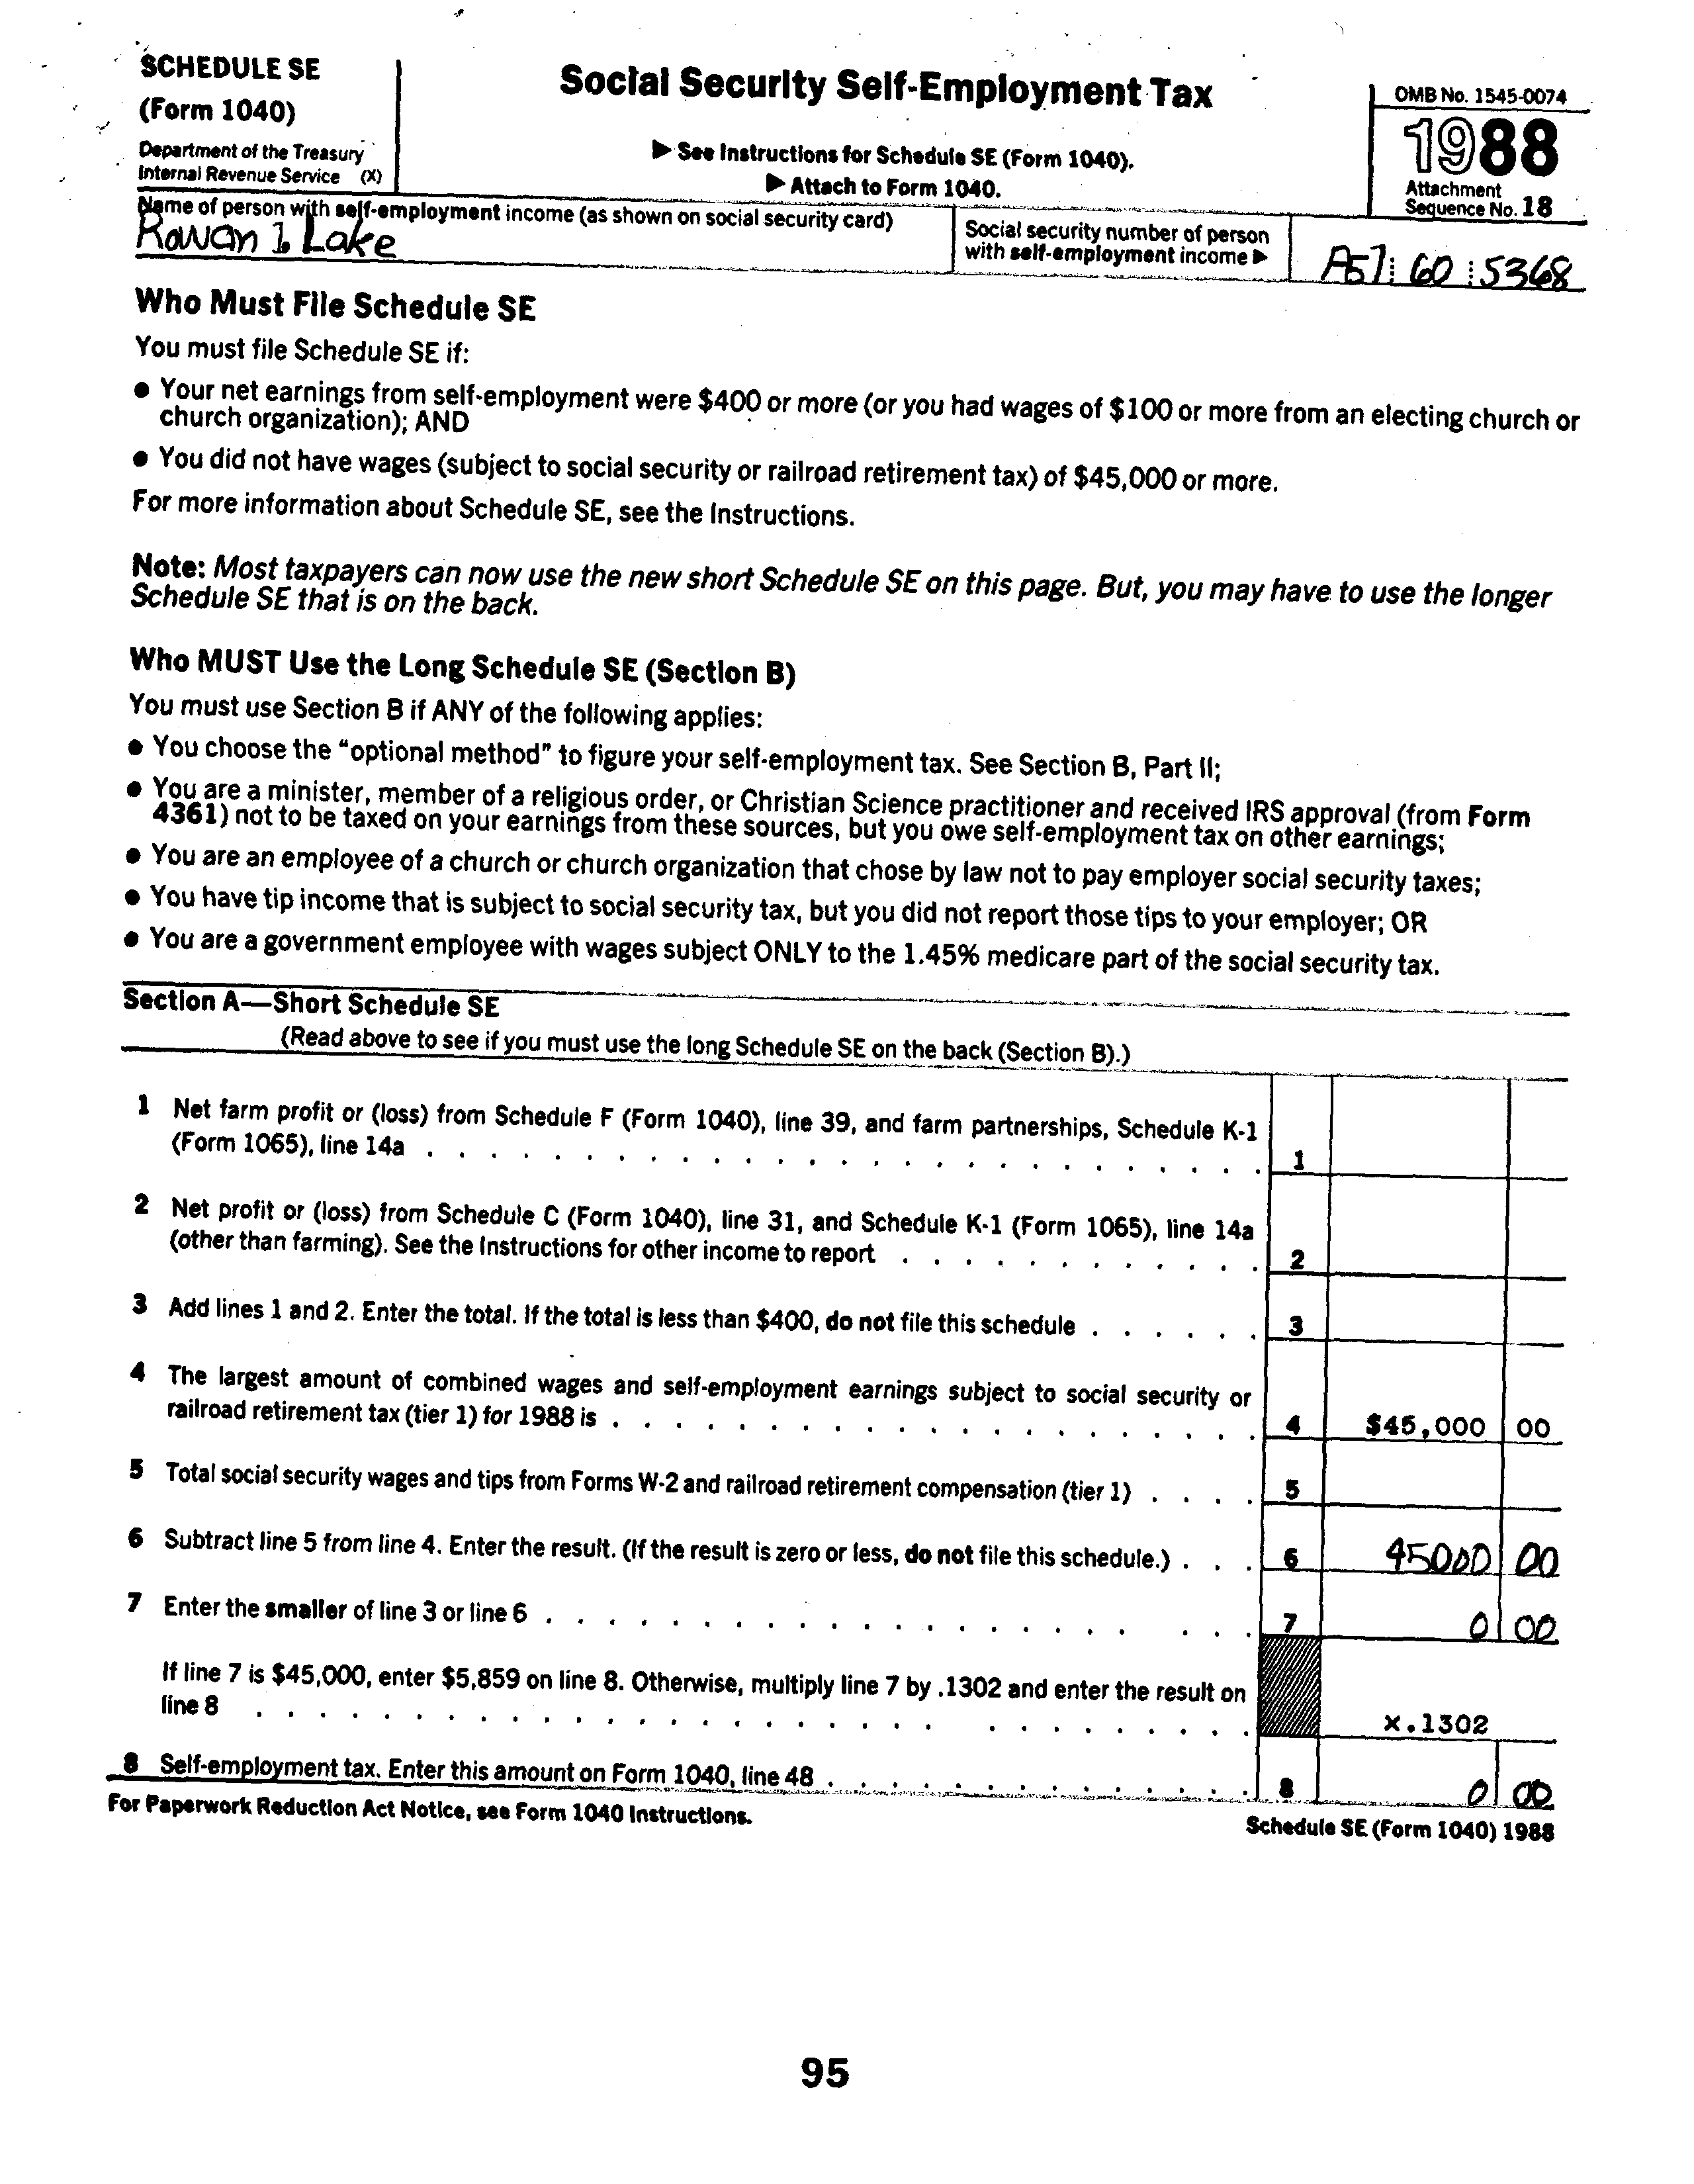 SCHEDULE SE
(Form 1040)
Department of the Treasury
Internal Revenue Service (X)
Social Security Self-Employment Tax
▶ See Instructions for Schedule SE (Form 1040).
▶ Attach to Form 1040.
OMB No. 1545-0074
1988
Attachment
Sequence No. 18
Name of person with self-employment income (as shown on social security card)
Rowan I. Lake
Social security number of person
with self-employment income ▶
A57 60 5368
Who Must File Schedule SE
You must file Schedule SE if:
● Your net earnings from self-employment were $400 or more (or you had wages of $100 or more from an electing church or
church organization); AND
● You did not have wages (subject to social security or railroad retirement tax) of $45,000 or more.
For more information about Schedule SE, see the Instructions.
Note: Most taxpayers can now use the new short Schedule SE on this page. But, you may have to use the longer
Schedule SE that is on the back.
Who MUST Use the Long Schedule SE (Section B)
You must use Section B if ANY of the following applies:
● You choose the “optional method” to figure your self-employment tax. See Section B, Part II;
● You are a minister, member of a religious order, or Christian Science practitioner and received IRS approval (from Form
4361) not to be taxed on your earnings from these sources, but you owe self-employment tax on other earnings;
● You are an employee of a church or church organization that chose by law not to pay employer social security taxes;
● You have tip income that is subject to social security tax, but you did not report those tips to your employer; OR
● You are a government employee with wages subject ONLY to the 1.45% medicare part of the social security tax.
Section A—Short Schedule SE
(Read above to see if you must use the long Schedule SE on the back (Section B).)
1 Net farm profit or (loss) from Schedule F (Form 1040), line 39, and farm partnerships, Schedule K-1
(Form 1065), line 14a . . . . . . . . . . . . . . . . . . . . . . . . . . . 1
2 Net profit or (loss) from Schedule C (Form 1040), line 31, and Schedule K-1 (Form 1065), line 14a
(other than farming). See the Instructions for other income to report . . . . . . . . . . . . 2
3 Add lines 1 and 2. Enter the total. If the total is less than $400, do not file this schedule . . . . . . 3
4 The largest amount of combined wages and self-employment earnings subject to social security or
railroad retirement tax (tier 1) for 1988 is . . . . . . . . . . . . . . . . . . . . . 4 $45,000 00
5 Total social security wages and tips from Forms W-2 and railroad retirement compensation (tier 1) . . . . 5
6 Subtract line 5 from line 4. Enter the result. (If the result is zero or less, do not file this schedule.) . . . 6 45000 00
7 Enter the smaller of line 3 or line 6 . . . . . . . . . . . . . . . . . . . . . . 7 0 00
If line 7 is $45,000, enter $5,859 on line 8. Otherwise, multiply line 7 by .1302 and enter the result on
line 8 . . . . . . . . . . . . . . . . . . . . . . . . . . . . . . . x.1302
8 Self-employment tax. Enter this amount on Form 1040, line 48 . . . . . . . . . . . . . . 8 0 00
For Paperwork Reduction Act Notice, see Form 1040 Instructions.
Schedule SE (Form 1040) 1988
95